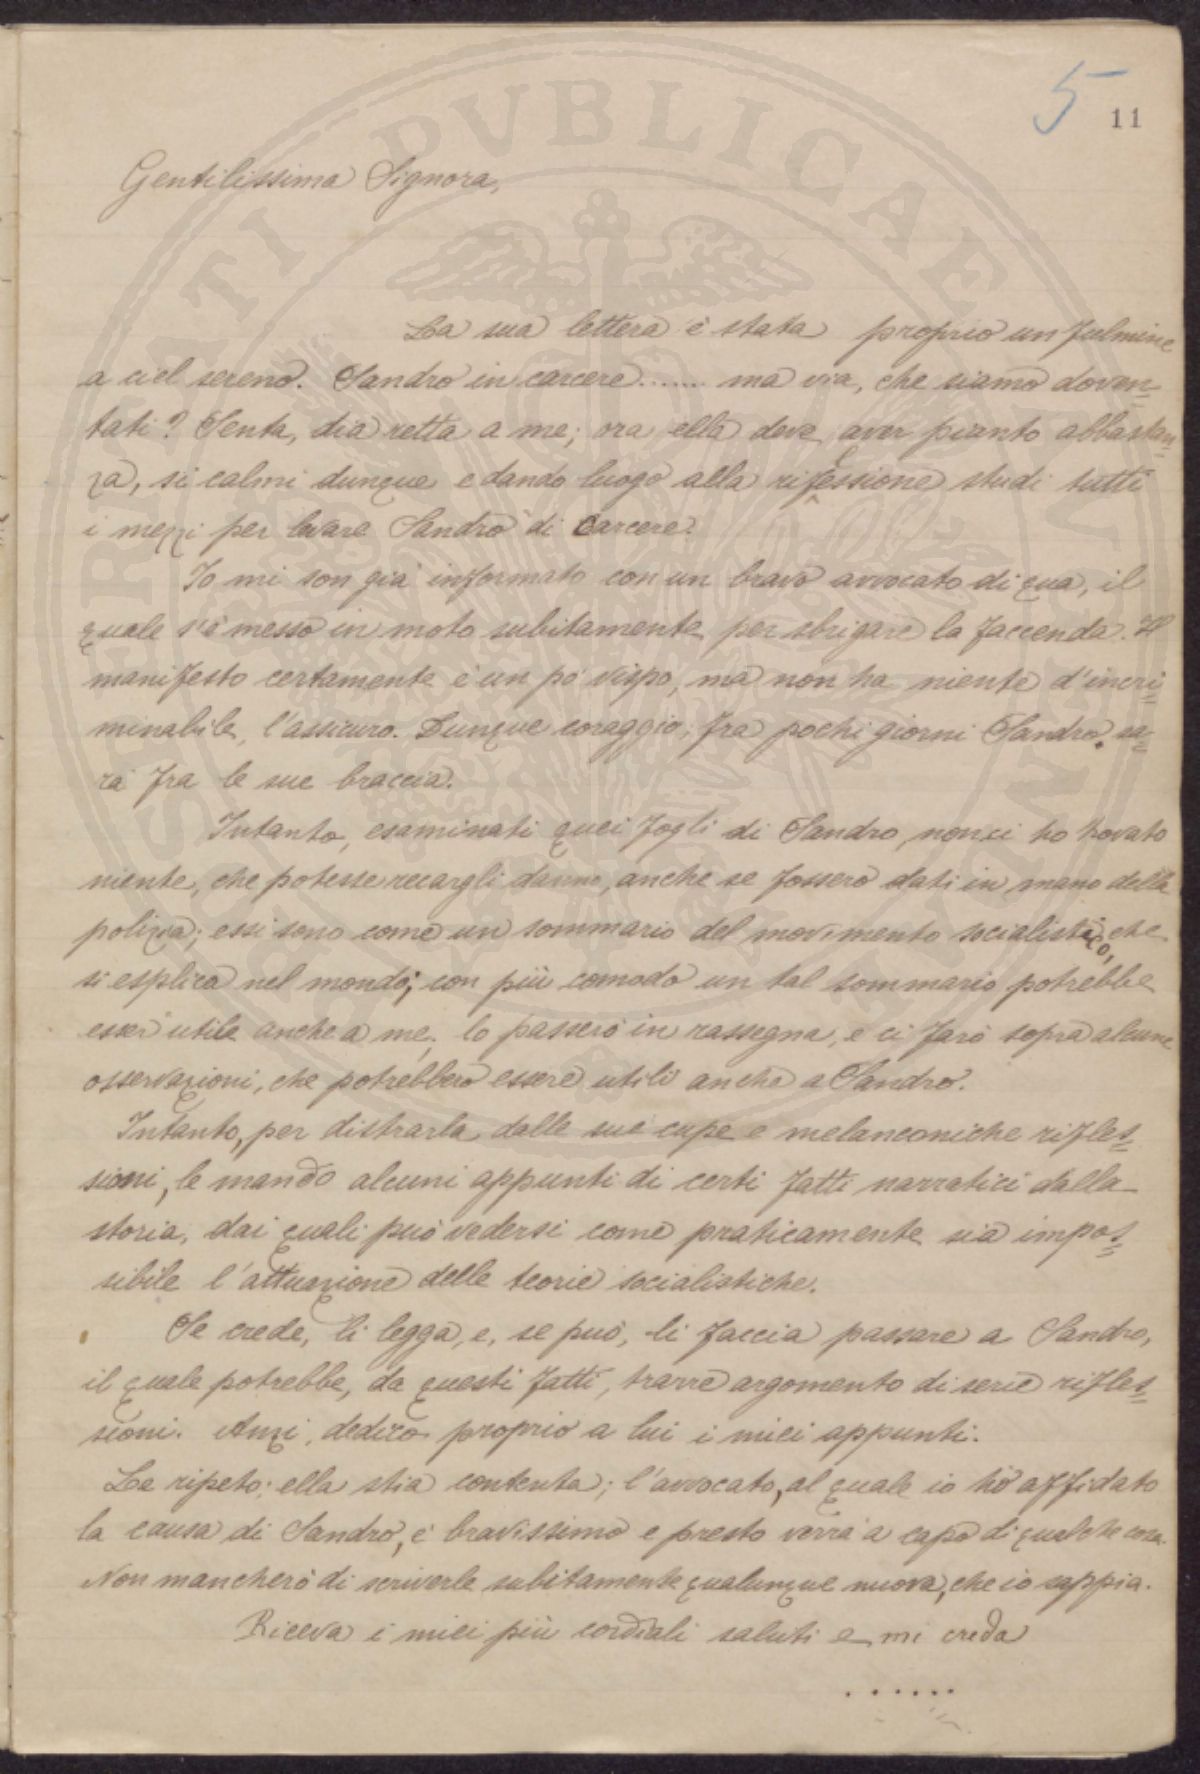 5 11
Gentilissima Signora,
La sua lettera è stata proprio un fulmine
a ciel sereno. Sandro in carcere....... ma via, che siamo doven=
tati? Senta, dia retta a me; ora ella deve aver pianto abbastan=
za, si calmi dunque e dando luogo alla riflessione studi tutti
i mezzi per levare Sandro di carcere.
Io mi son già informato con un bravo avvocato di qua, il
quale s'è messo in moto subitamente per sbrigare la faccenda. Il
manifesto certamente è un po' vispo, ma non ha niente d'incri=
minabile, l'assicuro. Dunque coraggio; fra pochi giorni Sandro sa=
rà fra le sue braccia.
Intanto, esaminati quei fogli di Sandro, non ci ho trovato
niente, che potesse recargli danno, anche se fossero dati in mano della
polizia; essi sono come un sommario del movimento socialistico, che
si esplica nel mondo; con più comodo un tal sommario potrebbe
esser utile anche a me; lo passerò in rassegna, e ci farò sopra alcune
osservazioni, che potrebbero essere utili anche a Sandro.
Intanto, per distrarla dalle sue cupe e melanconiche rifles=
sioni, le mando alcuni appunti di certi fatti narratici dalla
storia, dai quali può vedersi come praticamente sia impos=
sibile l'attuazione delle teorie socialistiche.
Se crede, li legga, e, se può, li faccia passare a Sandro,
il quale potrebbe, da questi fatti, trarre argomento di serie rifles=
sioni. Anzi, dedico proprio a lui i miei appunti.
Le ripeto: ella stia contenta; l'avvocato, al quale io ho affidato
la causa di Sandro, è bravissimo e presto verrà a capo di qualche cosa.
Non mancherò di scriverle subitamente qualunque nuova, che io sappia.
Riceva i miei più cordiali saluti e mi creda
......